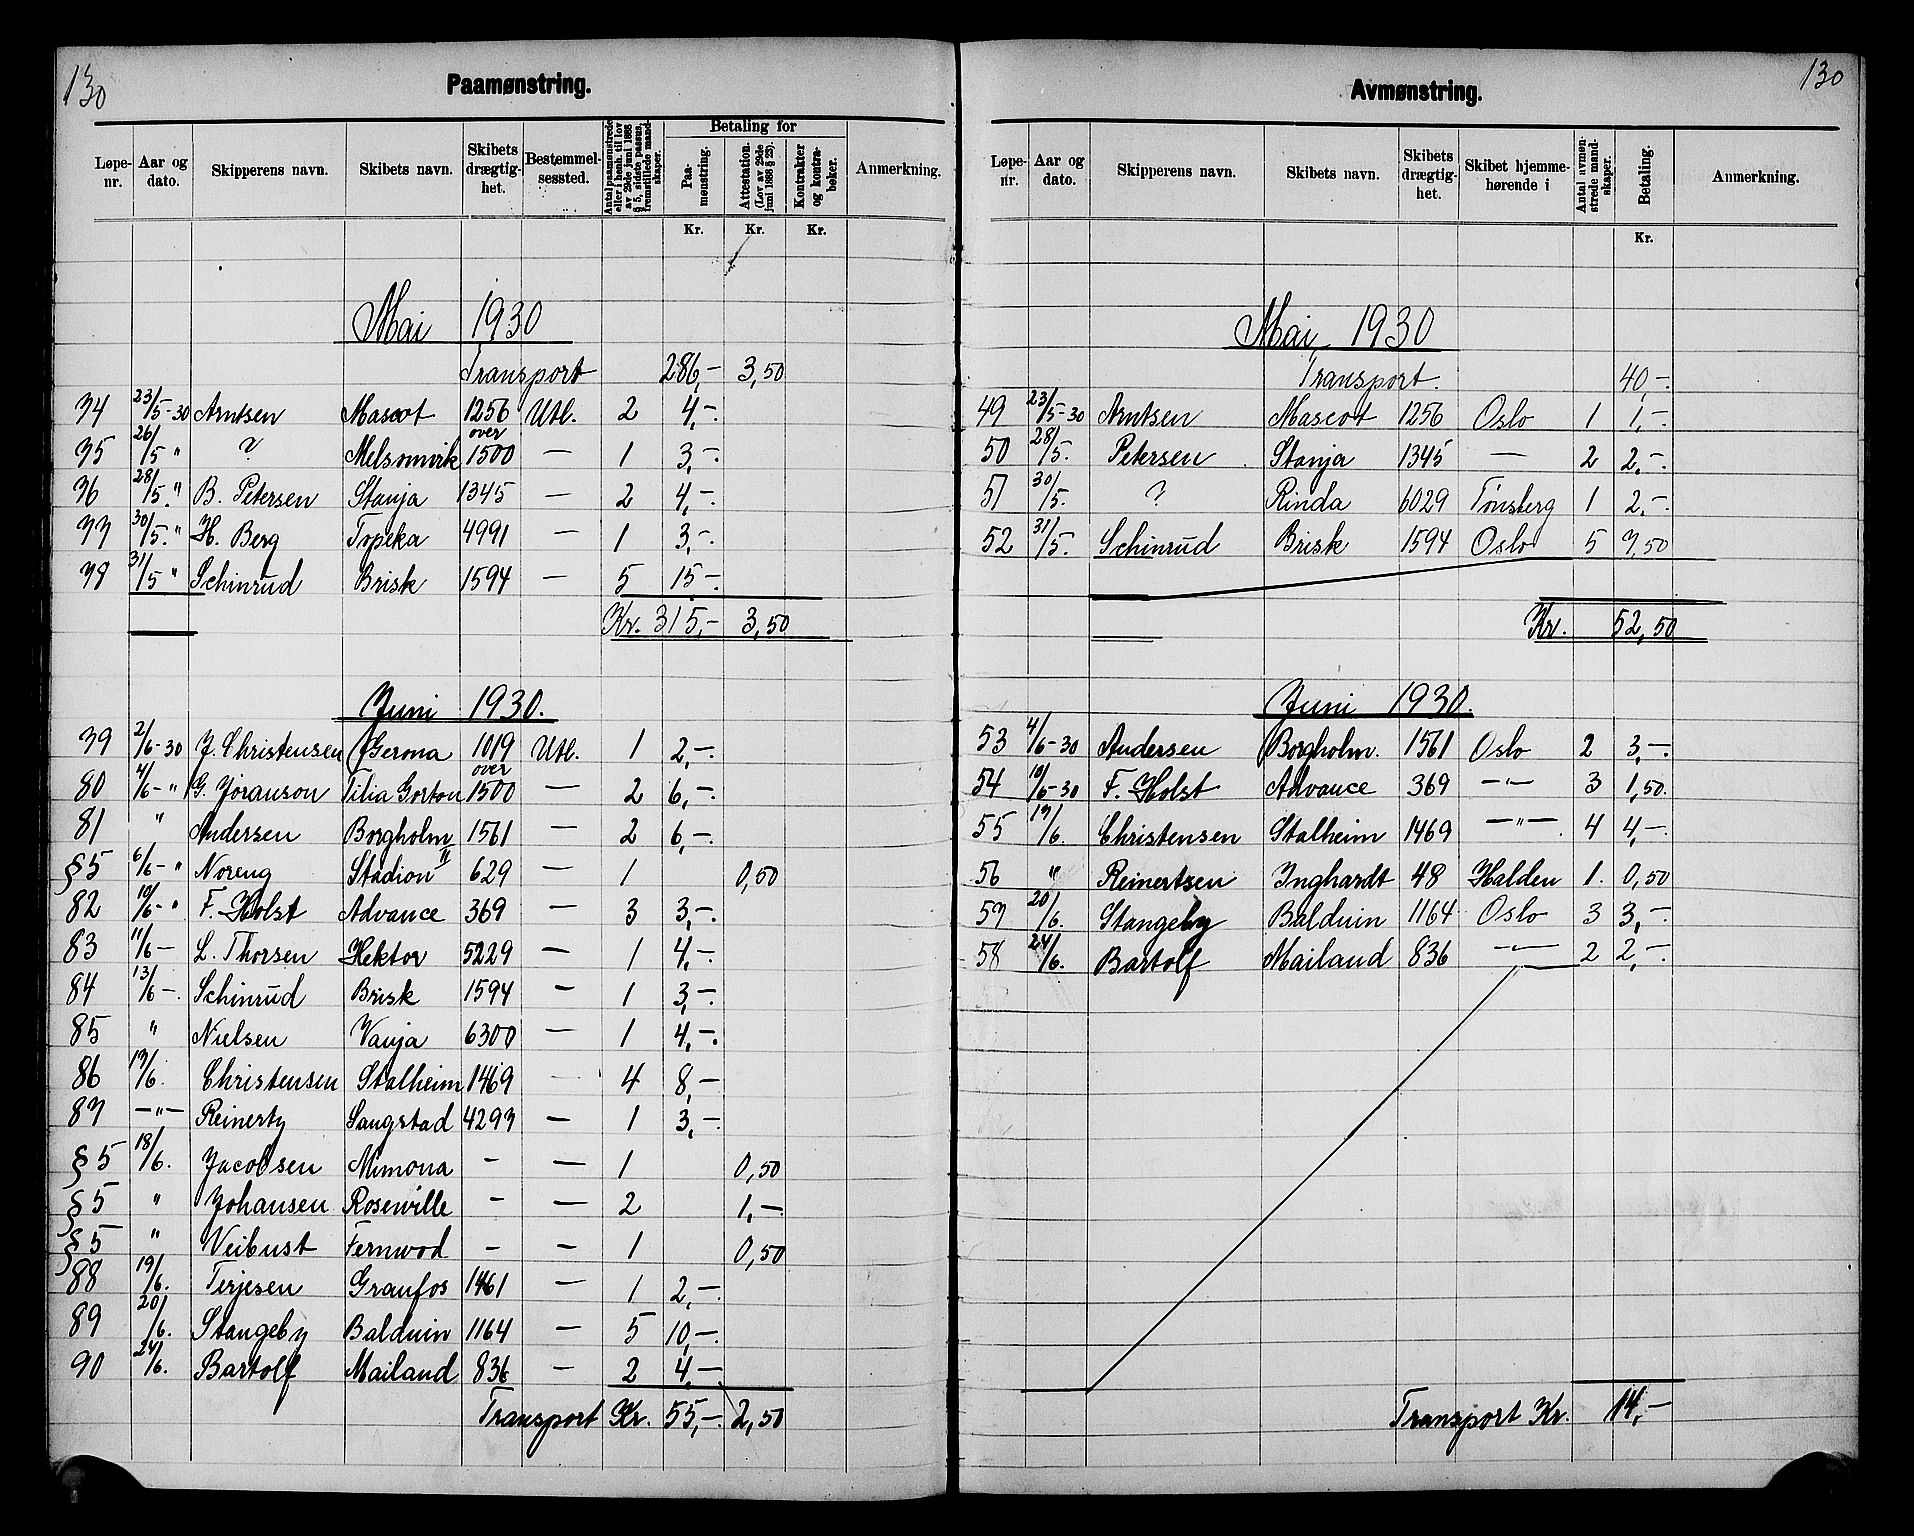 130
Paamønstring.
Løpe-nr. Aar og dato. Skipperens navn. Skibets navn. Skibets drægtighet. Bestemmelsessted. Antal paamønstrede eller i henh. til lov av 29de juni 1888 § 5, sidste passus, fremstillede mandskaper. Betaling for Paamønstring. Attestation. (Lov av 29de juni 1888 § 25). Kontrakter og kontrabøker. Anmerkning.
Kr. Kr. Kr.
Mai 1930
Transport 286,- 3,50
74 23/5-30 Arntsen Mascot 1256 Utl. 2 4,-
75 26/5 " ? Melsomvik over 1500 — 1 3,-
76 28/5 " B. Petersen Stanja 1345 — 2 4,-
77 30/5 " H. Berg Topeka 4991 — 1 3,-
78 31/5 " Schinrud Brisk 1594 — 5 15-
Kr. 315,- 3,50
Juni 1930.
79 2/6-30 J. Christensen Gerona 1019 Utl. 1 2,-
80 4/6- " G. Jöranson Tilia Gorton over 1500 — 2 6,-
81 " Andersen Borgholm 1561 — 2 6,-
§5 6/6- " Noreng Stadion II 629 — 1 0,50
82 10/6- " F. Holst Advance 369 — 3 3,-
83 11/6- L. Thorsen Hektor 5229 — 1 4,-
84 13/6-. Schinrud Brisk 1594 — 1 3,-
85 " Nielsen Vanja 6300 — 1 4,-
86 17/6. Christensen Stalheim 1469 — 4 8,-
87 —"— Reinertz Sangstad 4297 — 1 3,-
§5 18/6. Jacobsen Mimona - — 1 0,50
§5 " Johansen Roseville - — 2 1,-
§5 " Veibust Fernwod - — 1 0,50
88 19/6. Terjesen Granfos 1461 — 1 2,-
89 20/6. Stangeby Balduin 1164 — 5 10,-
90 24/6. Bartolf Mailand 836 — 2 4,-
Transport Kr. 55,- 2,50
130
Avmønstring.
Løpe-nr. Aar og dato. Skipperens navn. Skibets navn. Skibets drægtighet. Skibet hjemmehørende i Antal avmønstrede mandskaper. Betaling. Anmerkning.
Kr.
Mai 1930
Transport. 40,-
49 23/5-30 Arntsen Mascot 1256 Oslo 1 1,-
50 28/5. Petersen Stanja 1345 — 2 2,-
51 30/5. ? Rinda 6029 Tønsberg 1 2,-
52 31/5. Schinrud Brisk 1594 Oslo 5 7,50
Kr. 52,50
Juni 1930.
53 4/6-30 Andersen Borgholm. 1561 Oslo 2 3,-
54 10/6-30 F. Holst Advance 369 —"— 3 1,50.
55 17/6. Christensen Stalheim 1469 —"—. 4 4,-
56 " Reinertsen Inghardt 48 Halden 1. 0,50
57 20/6. Stangeby Balduin 1164 Oslo 3 3,-
58 24/6. Bartolf Mailand 836 —"— 2 2,-
Transport Kr. 14,-